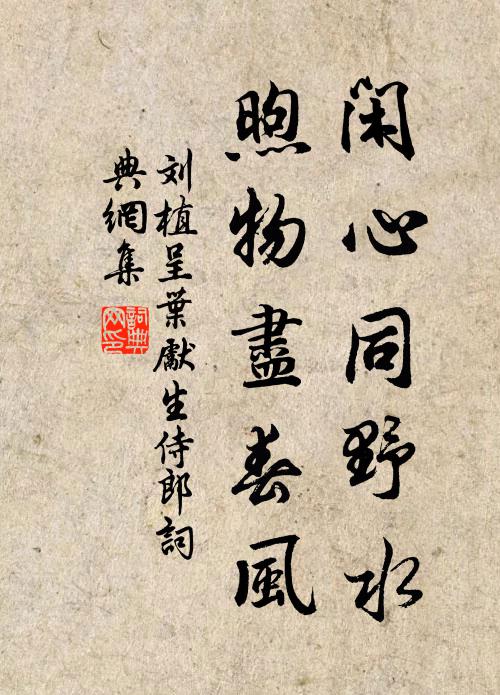 閑心同野水
煦物盡春風
刘植呈葉獻生侍郎詞
典網集
詞典網印